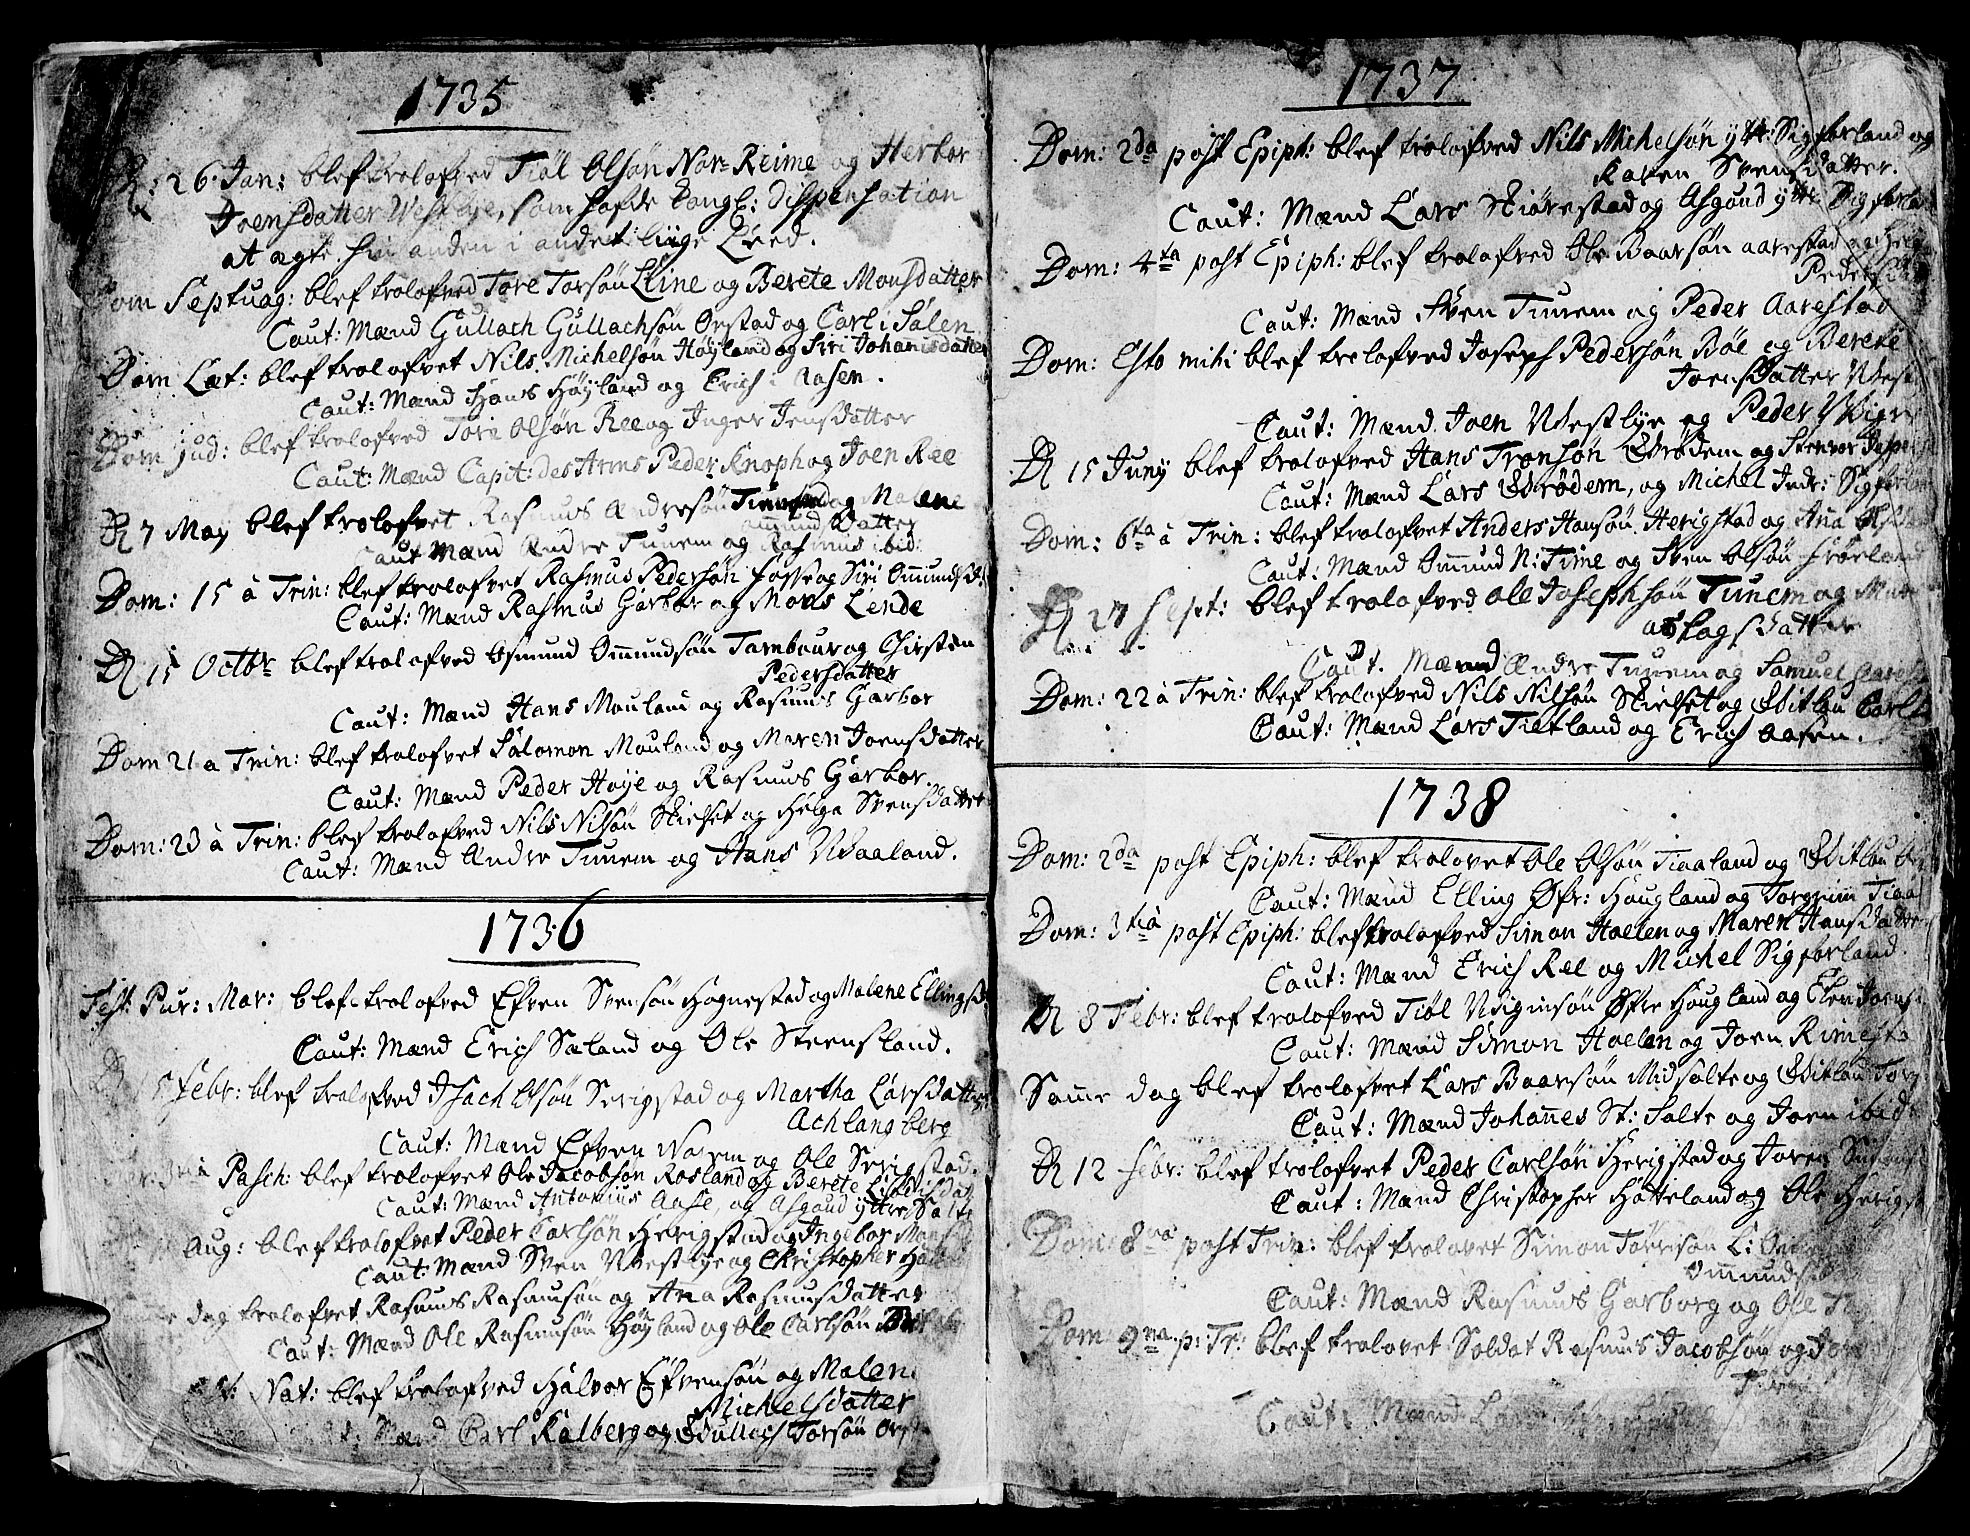 1735
D. 26 Jan: blef trolofved Tiøl Olsøn Nor-Reime og Herbor
Joensdatter Westlye, som hafde Kongl: Dispensation
at ægte hin anden i andet liige Leed.
Dom Septuag: blef trolofved Tore Torsøn Line og Berete Monsdatter
Caut: Mænd Gullach Gullachsøn Orstad og Carl i Salen
Dom Læt: blef trolofvet Nils Michelsøn Høyland og Siri Johanisdatter
Caut: Mænd Hans Høyland og Erich i Aasen.
Dom Jud: blef trolofved Tore Olsøn Ree og Inger Jensdatter
Caut: Mænd Capit: des Arms Peder Knoph og Joen Ree
D 7 May blef trolofvet Rasmus Andresøn Tunem og Malene
Ommundsdatter
Caut Mænd Andre Tunem og Rasmus ibid:
Dom: 15 à Trin: blef trolofvet Rasmus Pedersøn Fosse og Siri Ommundsd:
Caut: Mænd Rasmus Garbor og Mons Lende
D 15 Octbr blef trolofved Osmund Ommundsøn Tambour og Chirsten
Pedersdatter
Caut: Mænd Hans Mouland og Rasmus Garbor
Dom 21 a Trin: blef trolofvet Salomon Mouland og Maren Joensdatter
Caut: Mænd Peder Høye og Rasmus Garbor.
Dom: 23 à Trin: blef trolofved Nils Nilsøn Skielset og Helga Svensdatter
Caut: Mænd Andre Tunem og Hans Waaland.
1736
Fest: Pur: Mar: blef trolofved Efven Svensøn Hognestad og Malene Ellingsd:
Caut: Mænd Erich Sæland og Ole Steensland.
D 5 Febr: blef trolofved Isach Olsøn Serigstad og Martha Larsdatter
Achlangberg
Caut: Mænd Efven Norem og Ole Serigstad.
Pasch: blef trolofvet Ole Jacobsøn Rosland og Berete
Caut: Mænd Antonius Aase, og Asgoud yttre Salte
Aug: blef trolofvet Peder Carlsøn Herigstad og Ingebor
Caut: Mænd Sven Westlye og Christopher
dag trolofvet Rasmus Rasmusøn og Ana Rasmusdatter
Caut: Mænd Ole Rasmusøn Høyland og Ole Carlsøn
Nat: blef trolofved Halvor Efvensøn og Malen
Michelsdatter
Mænd Carl Kalberg og Gullach Torsøn
1737
Dom: 2da post Epiph: blef trolofved Nils Michelsøn ytt: Sigforland og
Karen Svensdatter.
Caut: Mænd Lars Skiørestad og Asgoud ytt: Sigforla
Dom: 4ta post Epiph: blef trolofved Ole Baarsøn Aarestad og
Peders
Caut: Mænd Sven Tunem og Peder Aarestad
Dom: Esto mihi blef trolofved Joseph Pedersøn Bøe og Berete
Joensdatter West
Caut: Mænd Joen Westlye og Peder
D 15 Juny blef trolofved Hans Tronsøn Brødem og Stenvor
Caut: Mænd Lars Brødem, og Michel Indr: Sigforland
Dom: 6ta à Trin: blef trolofvet Anders Hansøn Herigstad og Ana
Caut: Mænd Ommund N: Time og Sven Olsøn Frøeland
D 27 Sept: blef trolofved Ole Josephsøn Tunem og
Aslagsdatter
Caut. Mænd Andre Tunem og Samuel
Dom: 22 à Trin: blef trolofved Nils Nilsøn Skielset og Editlau Carl
Caut: Mænd Lars Tietland og Erich Aasen.
1738
Dom: 2da post Epiph: blef trolovet Ole Olsøn Tiaaland og Editlau
Caut: Mænd Elling Øfr: Hougland og Torgrim Tiaa
Dom: 3tia post Epiph: blef trolofved Simon Hoelen og Maren Hansdatter
Caut: Mænd Erich Ree og Michel Sigforland
D 8 Febr: blef trolofved Tiøl Wiginsøn Øfre Hougland og Elen Joens
Caut: Mænd Simon Hoelen og Joen Rimest
Samme dag blef trolofvet Lars Baarsøn Midsalte og Editlau
Caut: Mænd Johannes St: Salte og Joen ibid:
D 12 Febr: blef trolofvet Peder Carlsøn Herigstad og Joren
Caut: Mænd Christopher Hatteland og Ole Herigst
Dom: 8va post Trin: blef trolovet Simon Torrisøn L:
Ommunds
Caut: Mænd Rasmus Garborg og Ole
Dom: 9na p: Tr: blef trolovet Soldat Rasmus Jacobsøn og
Caut: Mænd